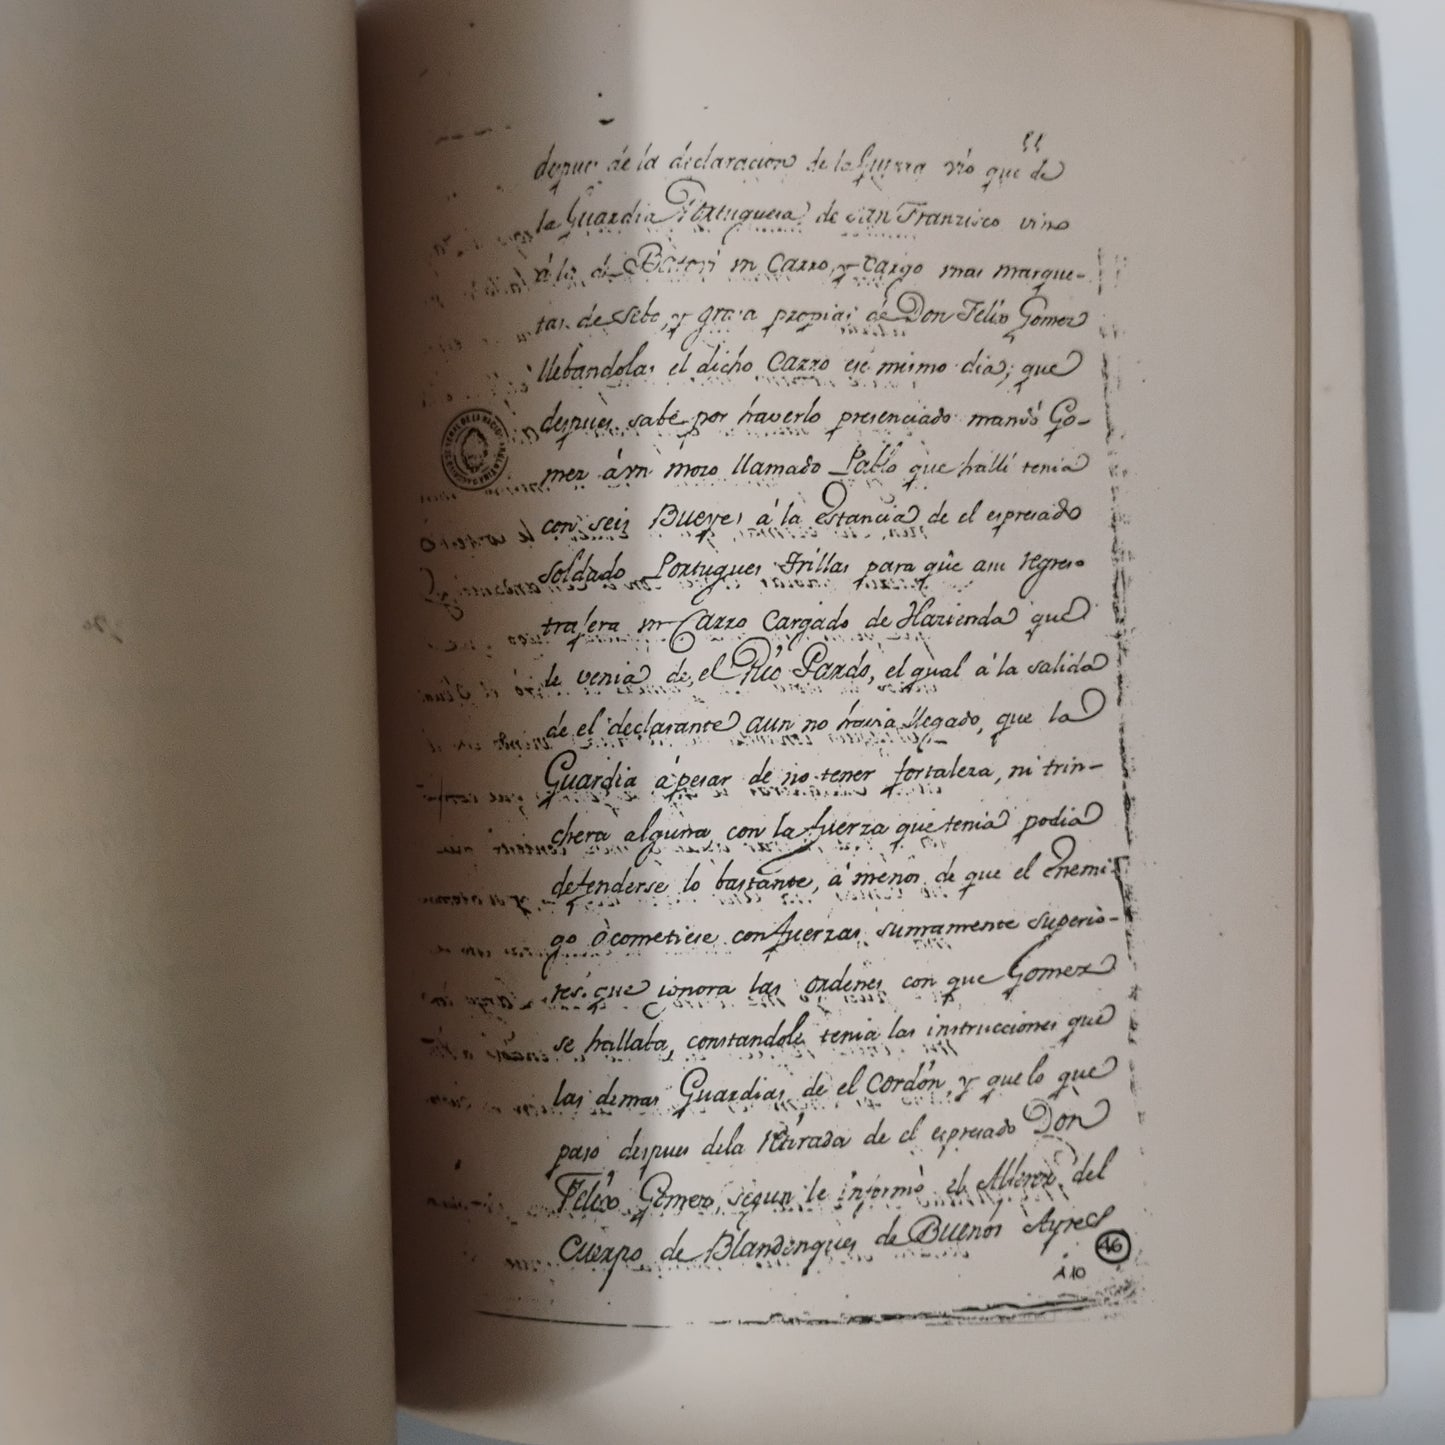 despues de la declaracion de la Guerra vio que de
la Guardia Portuguesa de San Franzisco vino
á la de Batovi un Carro, y cargo mas marque-
tas de Sebo, y grasa propias de Don Felix Gomez
llebandolas el dicho Carro ese mismo dia; que
despues sabe por haverlo presenciado mandó Go-
mez á un mozo llamado Pablo que hallí tenia
con seis Bueyes á la Estancia de el espresado
soldado Portugues Frillas para que a su regreso
trajera un Carro Cargado de Hazienda que
le venia de el Rio Pardo, el qual á la salida
de el declarante aun no havia llegado, que la
Guardia á pesar de no tener fortaleza, ni trin-
chera alguna con la fuerza que tenia podia
defenderse lo bastante, á menos de que el Enemi
go ȯcometiese con fuerzas sumamente superio-
res: que ignora las ordenes con que Gomez
se hallaba, constandole tenia las instrucciones que
las demas Guardias de el Cordón, y que lo que
paso despues de la retirada de el espresado Don
Felix Gomez, segun le informó el Alferez del
Cuerpo de Blandengues de Buenos Ayres
46
A 10